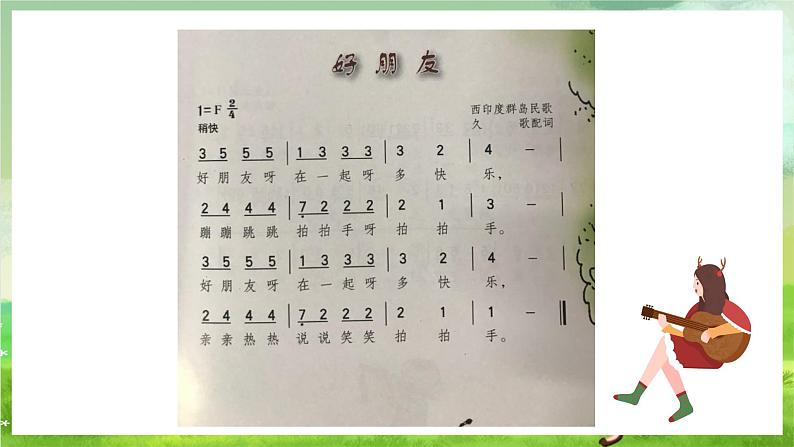 好朋友
1=F 2/4
西印度群岛民歌
稍快
久 歌配词
3 5 5 5 | 1 3 3 3 | 3 2 | 4 – |
好朋友呀 在一起呀 多快乐,
2 4 4 4 | 7 2 2 2 | 2 1 | 3 – |
蹦蹦跳跳 拍拍手呀 拍拍手。
3 5 5 5 | 1 3 3 3 | 3 2 | 4 – |
好朋友呀 在一起呀 多快乐,
2 4 4 4 | 7 2 2 2 | 2 1 | 1 – ‖
亲亲热热 说说笑笑 拍拍手。